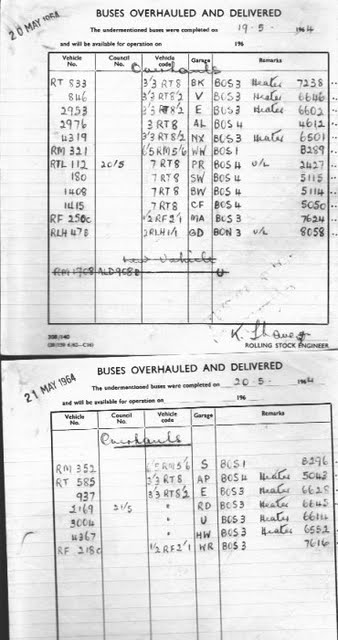 20 MAY 1964
BUSES OVERHAULED AND DELIVERED
The undermentioned buses were completed on 19-5- 1964
and will be available for operation on 196
Vehicle No. Council No. Vehicle code Garage Remarks
Overhauls
RT 833 3/3 RT8 BK BOS3 Heater 7238
846 3/3 RT8/2 V BOS3 Heater 6646
2953 3/3 RT8/2 E BOS3 Heater 6602
2976 3 RT8 AL BOS4 4612
4319 3/3 RT8/2 NX BOS3 Heater 6501
RM 321 1/5 RM5/6 WW BOS1 8289
RTL 112 20/5 7 RT8 PR BOS4 U/L 2427
180 7 RT8 SW BOS4 5115
1408 7 RT8 BW BOS4 5114
1415 7 RT8 CF BOS4 5050
RF 250c 1/2 RF2/1 MA BOS3 7624
RLH 47B 2RLH1/1 GD BON3 U/L 8058
New Vehicle
RM 1708 ALD 908B U
ROLLING STOCK ENGINEER
21 MAY 1964
BUSES OVERHAULED AND DELIVERED
The undermentioned buses were completed on 20-5- 1964
and will be available for operation on 196
Vehicle No. Council No. Vehicle code Garage Remarks
Overhauls
RM 352 1/5 RM5/6 S BOS1 8296
RT 585 3/3 RT8 AP BOS4 Heater 5043
937 3/3 RT8/2 E BOS3 Heater 6628
2169 21/5 " RD BOS3 Heater 6642
3004 " U BOS3 Heater 6614
4367 " HW BOS3 Heater 6552
RF 218c 1/2 RF2/1 WR BOS3 7616